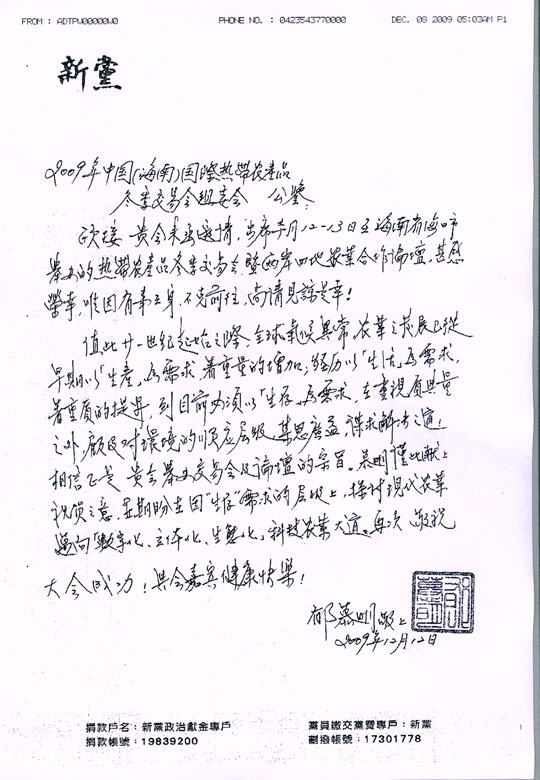 FROM : ADTPW00000W0 PHONE NO. : 0423543770000 DEC. 08 2009 05:03AM P1
新黨
2009年中国(海南)国際热带农產品
冬季交易会组委会 公鑒
欣接 貴会来函邀請,出席本月12-13日至海南省海口市
舉办的热带农產品冬季交易会暨两岸四地农業合作論壇,甚感
榮幸!唯因有事在身,不克前往,尚請見諒是幸!
值此廿一世紀起始之際,全球氣候異常,农業之發展已從
早期以「生產」為需求,着重量的增加;經历以「生活」為需求,
着重質的提昇,到目前必須以「生存」為需求,在重視質與量
之外,顧及对環境的順应层级,集思廣益,謀求解决之道!
相信正是 貴会舉办交易会及論壇的宗旨。慕明僅此献上
祝頌之意,并期盼在因「生存」需求的层级上,探討現代农業
邁向「數字化、立体化、生態化」科技农業大道。再次 敬祝
大会成功!與会嘉宾健康快樂!
郁慕明 敬上
2009年12月12日
捐款戶名:新黨政治獻金專戶 黨員繳交黨費專戶:新黨
捐款帳號:19839200 劃撥帳號:17301778